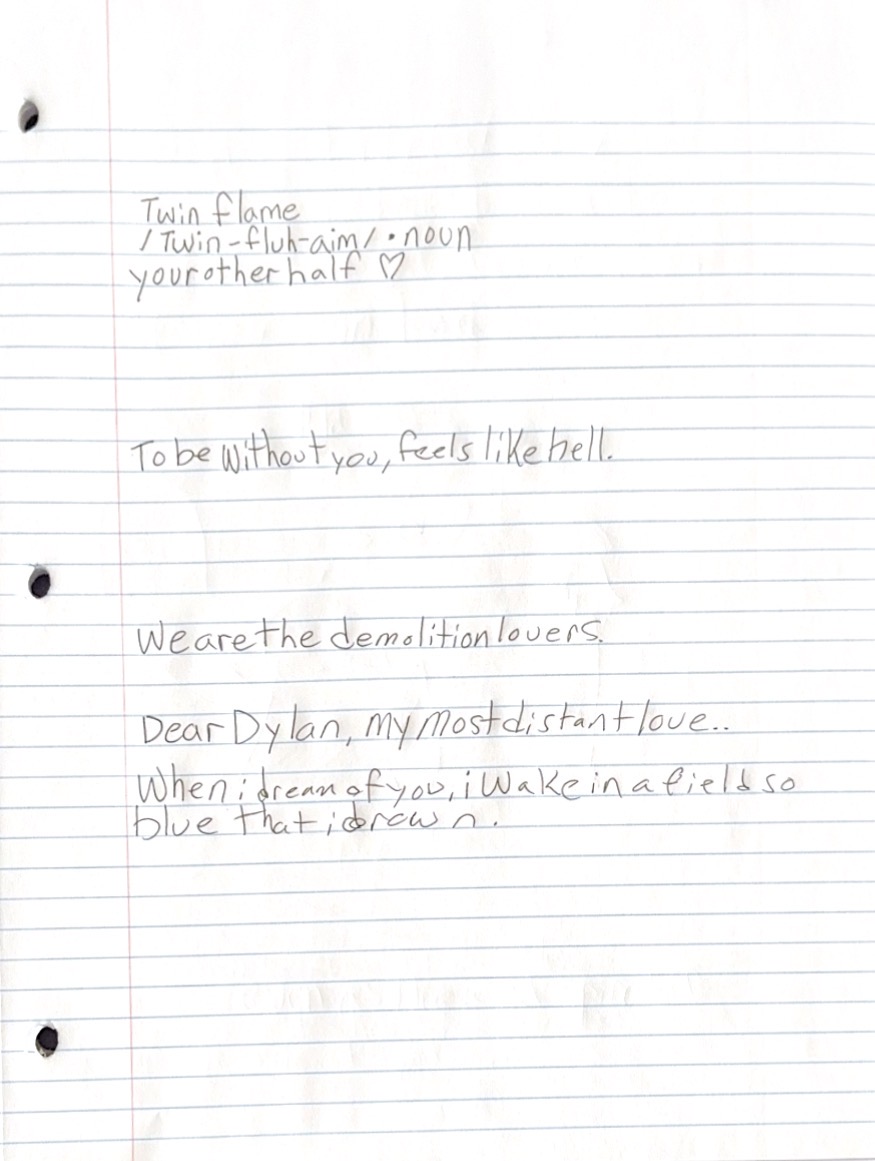 Twin flame
/Twin-fluh-aim/ • noun
your other half ♡
To be without you, feels like hell.
We are the demolition lovers.
Dear Dylan, my most distant love..
When i dream of you, i wake in a field so
blue that i drown.